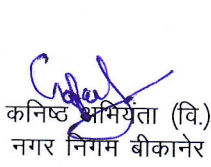 कनिष्ठ अभियंता (वि.)
नगर निगम बीकानेर